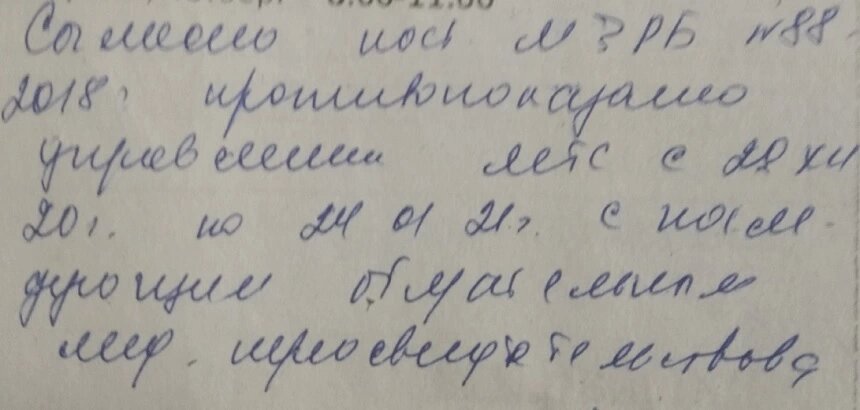 8.00-11.00
Согласно пост МЗРБ №88
2018г противопоказано
управление МТС с 28 XII
20г. по 24 01 21г. с после-
дующим обязательным
мед. переосвидетельствова